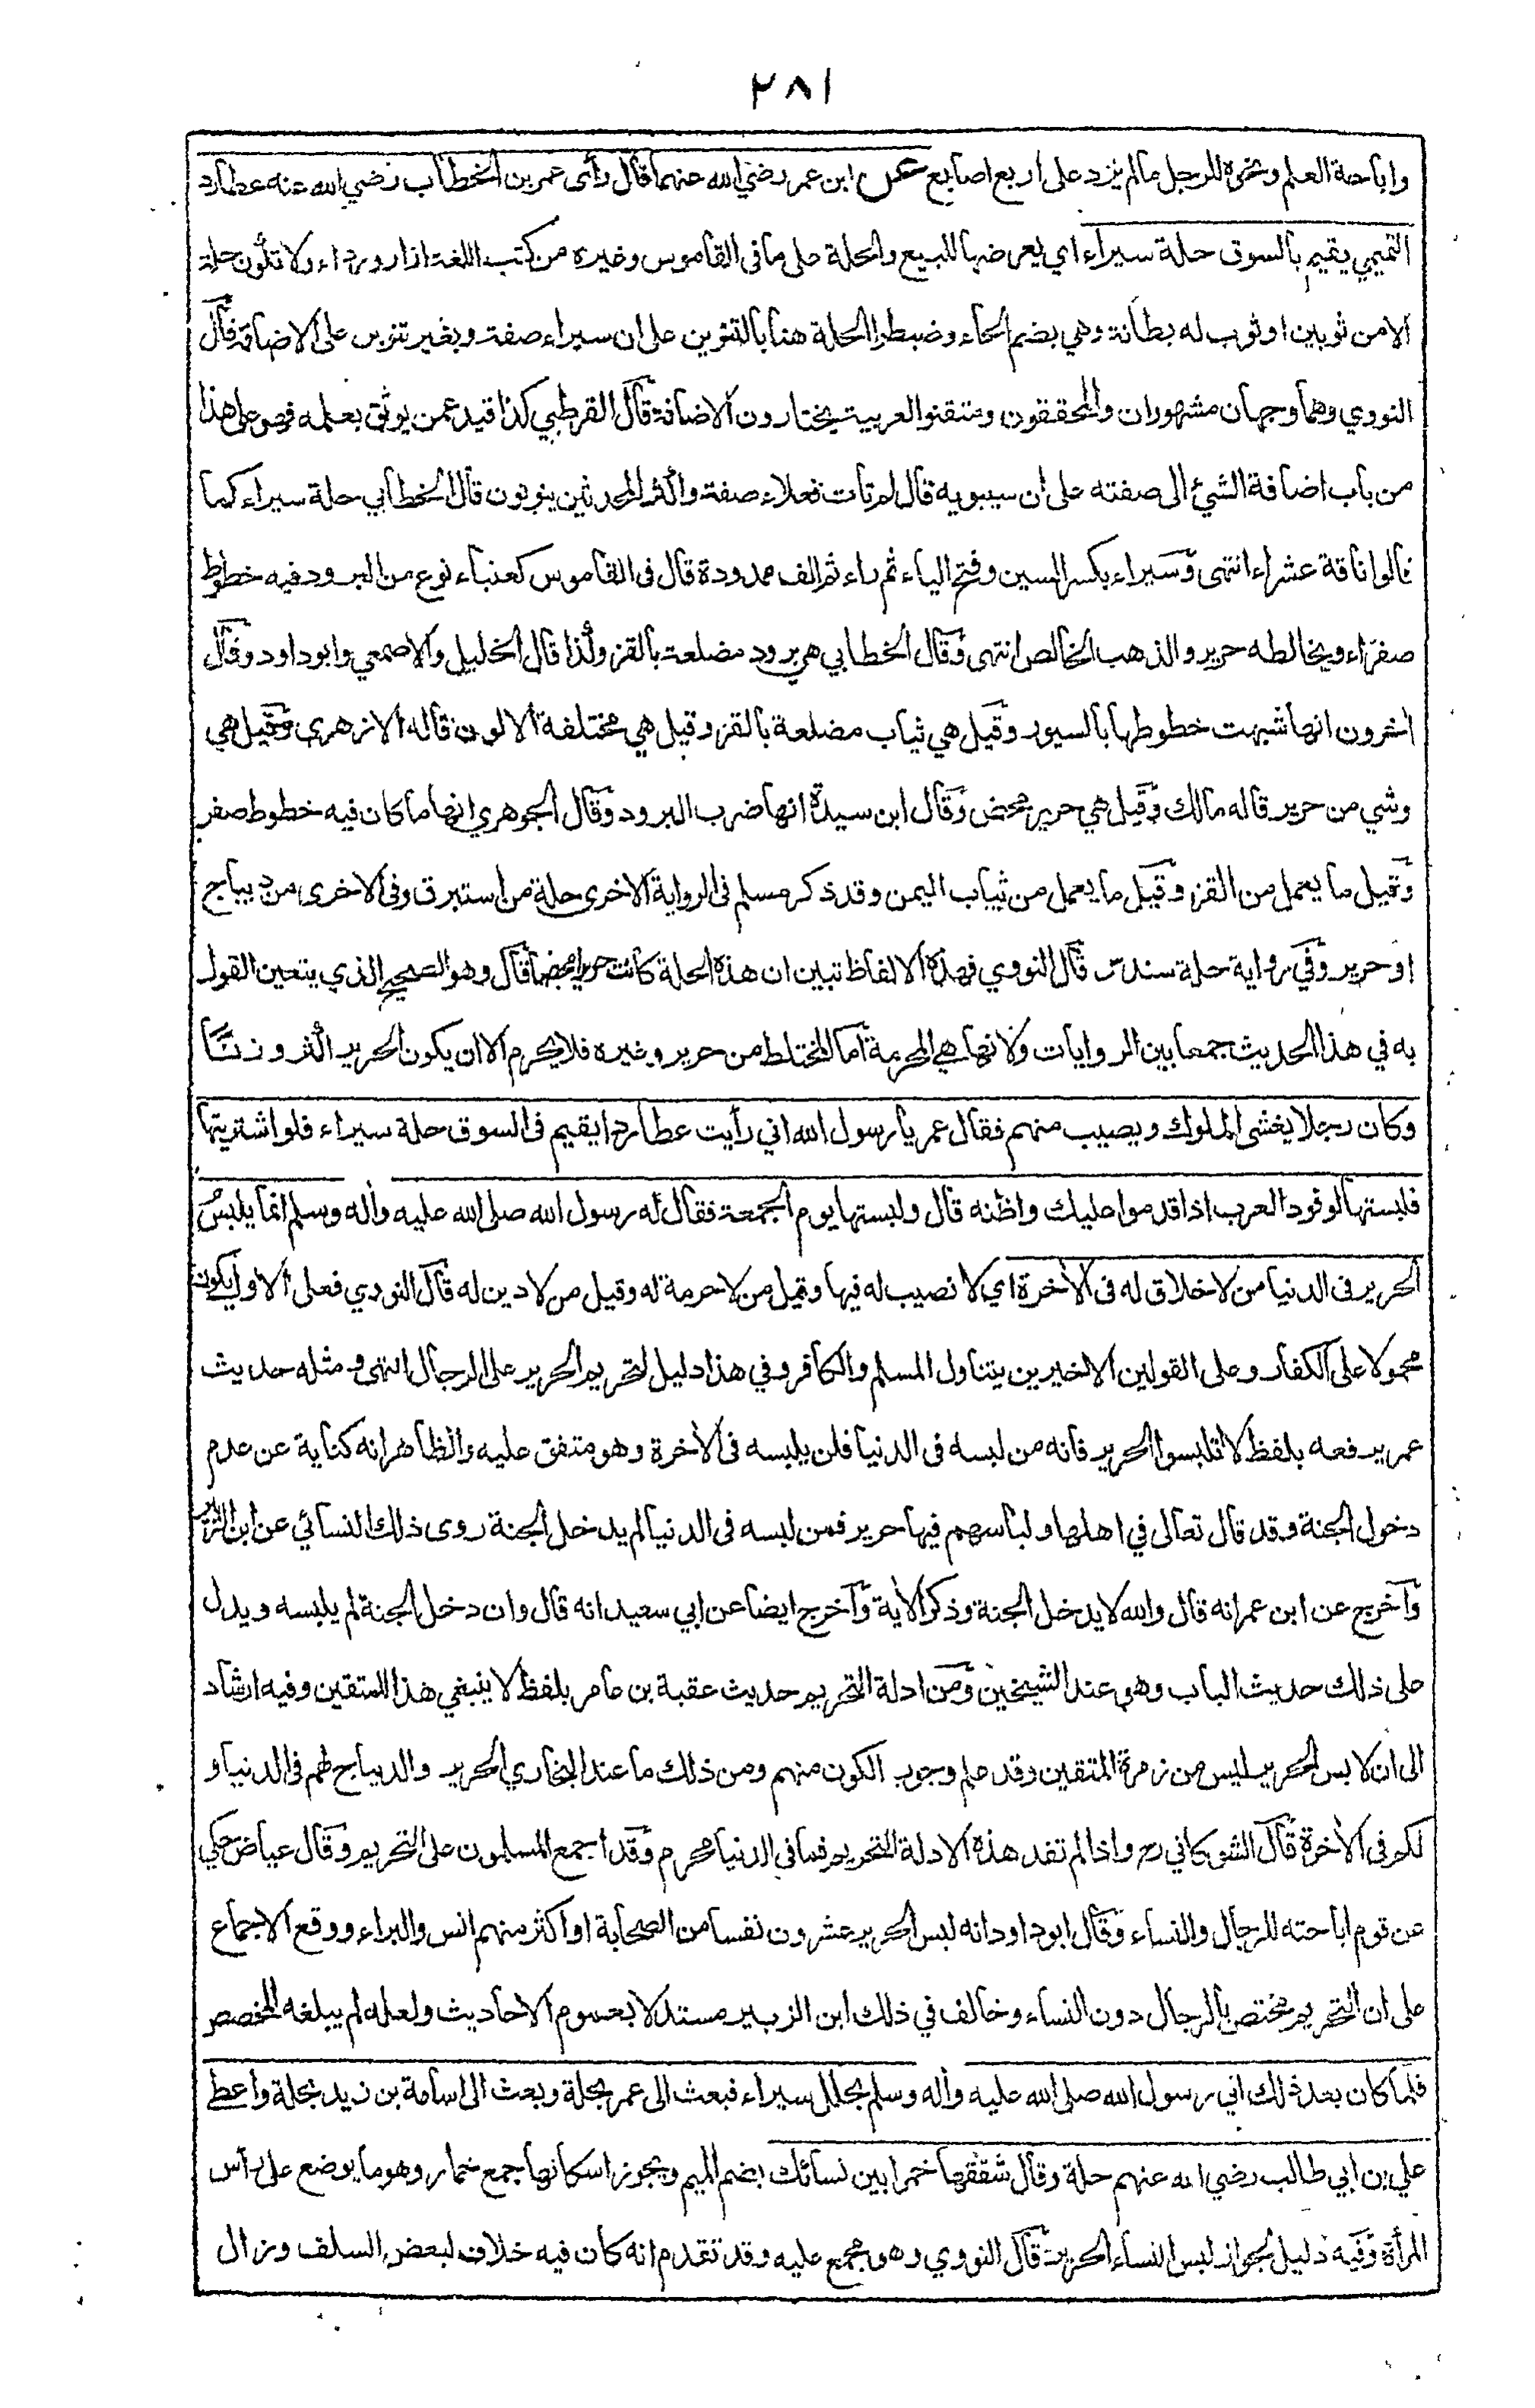 ٢٨١
واباحة العلم ونحوه للرجل مالم يزد على اربع اصابع عن ابن عمر رضي الله عنهما قال رأى عمر بن الخطاب رضي الله عنه عطارد
التميمي يقيم بالسوق حلة سيراء اي يعرضها للبيع والحلة على ما في القاموس وغيره من كتب اللغة ازار ورداء ولا تكون حلة
الا من ثوبين او ثوب له بطانة وهي بضم الحاء وضبطوا الحلة هنا بالتنوين على ان سيراء صفة وبغير تنوين على الاضافة قال
النووي وهما وجهان مشهوران والمحققون ومتقنو العربية يختارون الاضافة قال القرطبي كذا قيد عمن يوثق بعلمه فهو على هذا
من باب اضافة الشئ الى صفته على ان سيبويه قال لم تأت فعلاء صفة واكثر المحدثين ينونون قال الخطابي حلة سيراء كما
قالوا ناقة عشراء انتهى وسيراء بكسر السين وفتح الياء ثم راء ثم الف ممدودة قال في القاموس كعنباء نوع من البرود فيه خطوط
صفراء ويخالطه حرير والذهب الخالص انتهى وقال الخطابي هي برود مضلعة بالقز ولذا قال الخليل والاصمعي وابو داود وقال
اخرون انها شبهت خطوطها بالسيور وقيل هي ثياب مضلعة بالقز وقيل هي مختلفة الالوان قاله الازهري وقيل هي
وشي من حرير قاله مالك وقيل هي حرير محض وقال ابن سيدة انها ضرب البرود وقال الجوهري انها ما كان فيه خطوط صفر
وقيل ما يعمل من القز وقيل ما يعمل من ثياب اليمن وقد ذكر مسلم في الرواية الاخرى حلة من استبرق وفي الاخرى من ديباج
او حرير وفي رواية حلة سندس قال النووي فهذه الالفاظ تبين ان هذه الحلة كانت حريرا محضا قال وهو الصحيح الذي يتعين القول
به في هذا الحديث جمعا بين الروايات ولانها هي المحرمة اما المختلط من حرير وغيره فلا يحرم الا ان يكون الحرير اكثر وزنا
وكان رجلا يغشى الملوك ويصيب منهم فقال عمر يا رسول الله اني رأيت عطاردا يقيم في السوق حلة سيراء فلو اشتريتها
فلبستها لوفود العرب اذا قدموا عليك واظنه قال ولبستها يوم الجمعة فقال له رسول الله صلى الله عليه وأله وسلم انما يلبس
الحرير في الدنيا من لا خلاق له في الأخرة اي لا نصيب له فيها وقيل من لا حرمة له وقيل من لا دين له قال النووي فعلى الاول يكون
محمولا على الكفار وعلى القولين الاخيرين يتناول المسلم والكافر وفي هذا دليل لتحريم الحرير على الرجال انتهى ومثله حديث
عمر يرفعه بلفظ لا تلبسوا الحرير فانه من لبسه في الدنيا فلن يلبسه في الأخرة وهو متفق عليه والظاهر انه كناية عن عدم
دخول الجنة وقد قال تعالى في اهلها ولباسهم فيها حرير فمن لبسه في الدنيا لم يدخل الجنة روى ذلك النسائي عن ابن الزبير
واخرج عن ابن عمر انه قال والله لا يدخل الجنة وذكر الأية واخرج ايضا عن ابي سعيد انه قال وان دخل الجنة لم يلبسه ويدل
على ذلك حديث الباب وهو عند الشيخين ومن ادلة التحريم حديث عقبة بن عامر بلفظ لا ينبغي هذا للمتقين وفيه ارشاد
الى ان لابس الحرير ليس من زمرة المتقين وقد علم وجوب الكون منهم ومن ذلك ما عند البخاري الحرير والديباج لهم في الدنيا و
لكم في الأخرة قال الشوكاني رح واذا لم تفد هذه الادلة التحريم فما في الدنيا محرم وقد اجمع المسلمون على التحريم وقال عياض حكي
عن قوم اباحته للرجال والنساء وقال ابو داود انه لبس الحرير عشرون نفسا من الصحابة او اكثر منهم انس والبراء ووقع الاجماع
على ان التحريم مختص بالرجال دون النساء وخالف في ذلك ابن الزبير مستدلا بعموم الاحاديث ولعله لم يبلغه المخصص
فلما كان بعد ذلك اتي رسول الله صلى الله عليه وأله وسلم بحلل سيراء فبعث الى عمر بحلة وبعث الى اسامة بن زيد بحلة واعطى
علي بن ابي طالب رضي الله عنهم حلة وقال شققها خمرا بين نسائك بضم الميم ويجوز اسكانها جمع خمار وهو ما يوضع على رأس
المرأة وفيه دليل لجواز لبس النساء الحرير قال النووي وهو مجمع عليه وقد تقدم انه كان فيه خلاف لبعض السلف وزال